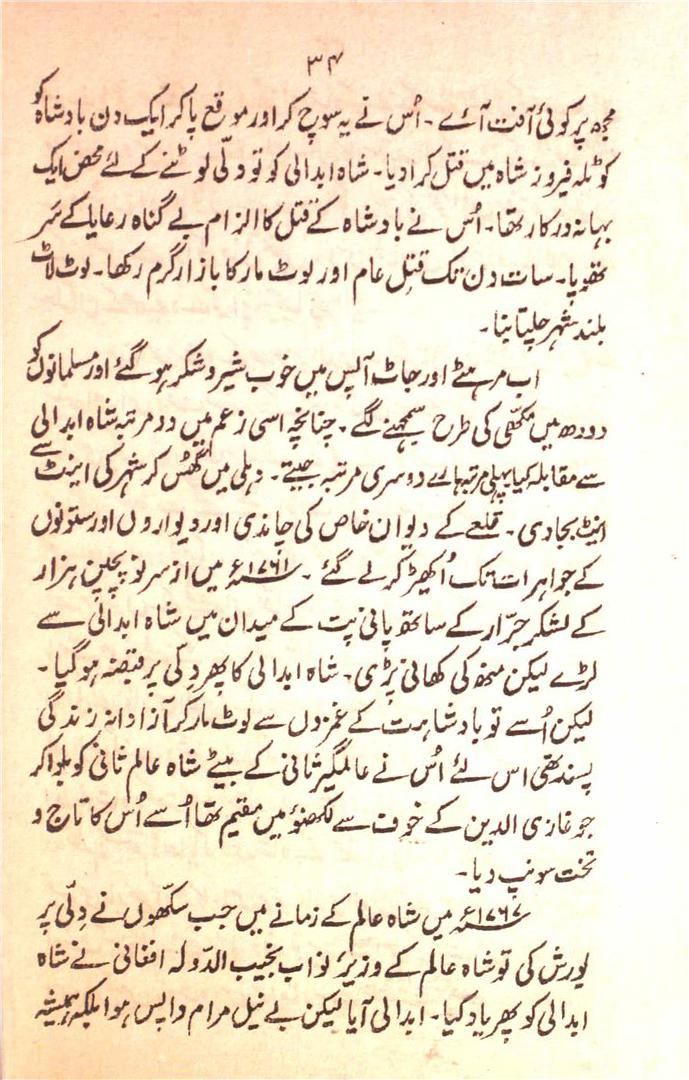 ۳۴
مجھ پر کوئی آفت آئے۔ اُس نے یہ سوچ کر اور موقع پا کر ایک دن بادشاہ کو
کوٹلہ فیروز شاہ میں قتل کرا دیا۔ شاہ ابدالی کو تو دلّی لوٹنے کے لئے محض ایک
بہانہ درکار تھا۔ اُس نے بادشاہ کے قتل کا الزام بے گناہ رعایا کے سَر
تھوپا۔ سات دن تک قتلِ عام اور لوٹ مار کا بازار گرم رکھا۔ لوٹ لاٹ
بلند شہر چلتا بنا۔
اب مرہٹے اور جاٹ آپس میں خوب شیر و شکر ہو گئے اور مسلمانوں کو
دودھ میں مکھّی کی طرح سمجھنے لگے۔ چنانچہ اسی زعم میں دو مرتبہ شاہ ابدالی
سے مقابلہ کیا پہلی مرتبہ ہارے دوسری مرتبہ جیتے۔ دہلی میں گھُس کر شہر کی اینٹ سے
اینٹ بجا دی۔ قلعے کے دیوان خاص کی چاندی اور دیواروں اور ستونوں
کے جواہرات تک اُکھیڑ کر لے گئے۔ ۱۷۶۱ء میں از سرِ نو پچپن ہزار
کے لشکرِ جرّار کے ساتھ پانی پت کے میدان میں شاہ ابدالی سے
لڑے لیکن منھ کی کھانی پڑی۔ شاہ ابدالی کا پھر دِلّی پر قبضہ ہو گیا۔
لیکن اُسے تو بادشاہت کے غمزوں سے لوٹ مار کر آزادانہ زندگی
پسند تھی اس لئے اُس نے عالمگیر ثانی کے بیٹے شاہ عالم ثانی کو بلوا کر
جو غازی الدین کے خوف سے لکھنؤ میں مقیم تھا اُسے اُس کا تاج و
تخت سونپ دیا۔
۱۷۶۷ء میں شاہ عالم کے زمانے میں جب سکّھوں نے دِلّی پر
یورش کی تو شاہ عالم کے وزیر نواب نجیب الدّولہ افغانی نے شاہ
ابدالی کو پھر یاد کیا۔ ابدالی آیا لیکن بے نیلِ مرام واپس ہوا بلکہ ہمیشہ